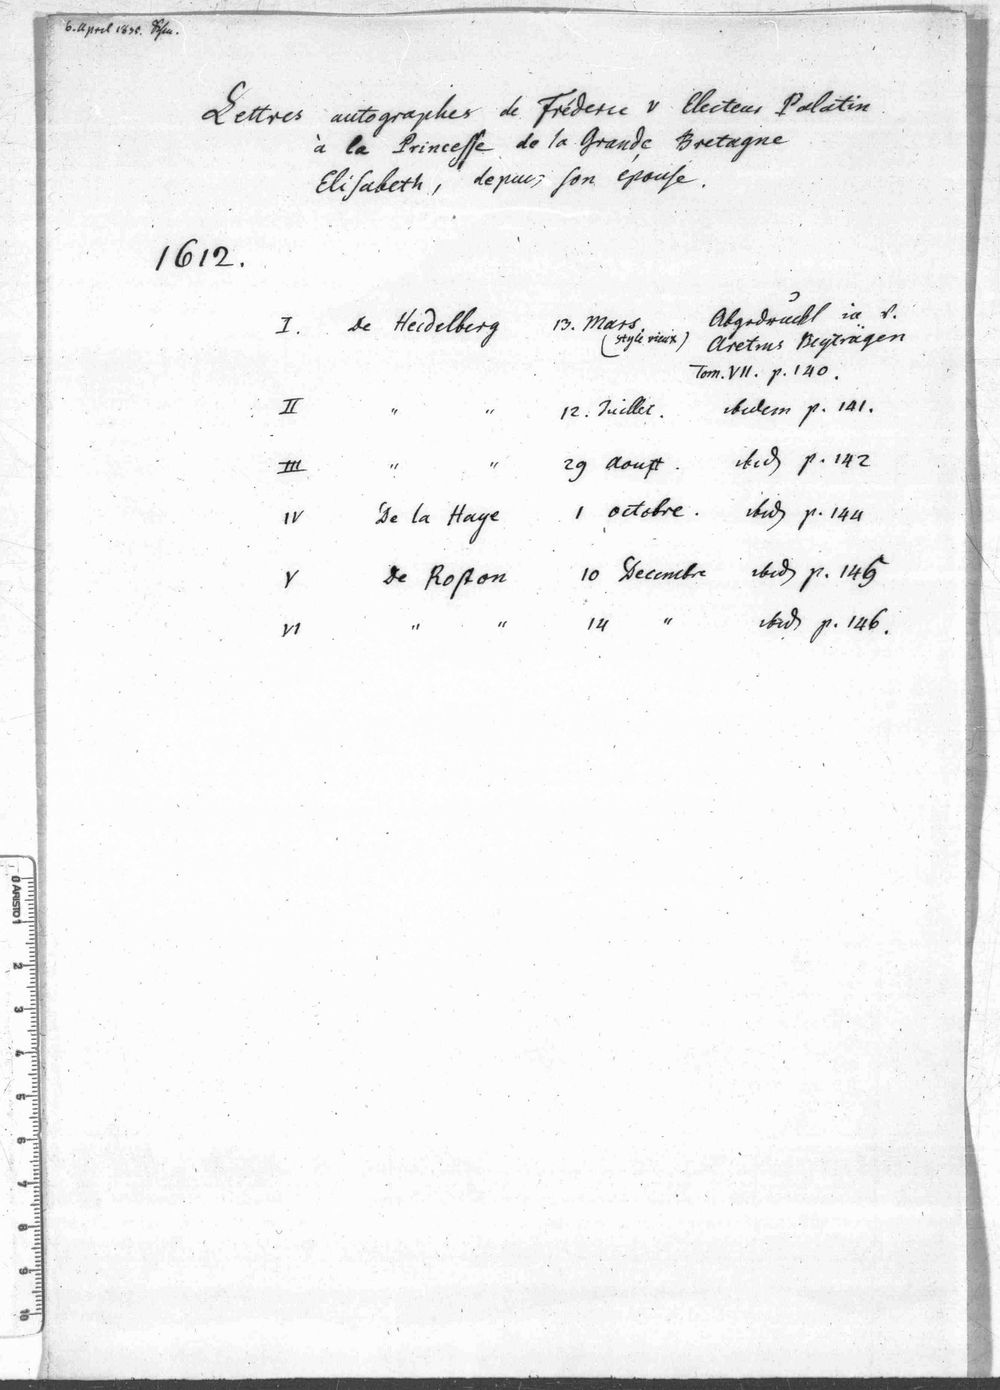 6. April 1838.
Lettres autographes de Fréderic V Electeur Palatin
à la Princesse de la Grande Bretagne
Elisabeth, depuis son épouse.
1612.
I. De Heidelberg 13. Mars. Abgedruckt in v.
(style vieux) Aretins Beyträgen
Tom. VII. p. 140.
II " " 12. Juillet. ibidem p. 141.
III " " 29 Aoust. ibid p. 142
IV De la Haye 1 octobre. ibid p. 144
V De Roston 10 Decembre ibid p. 145
VI " " 14 " ibid p. 146.
0 ARISTO 1
2
3
4
5
6
7
8
9
10